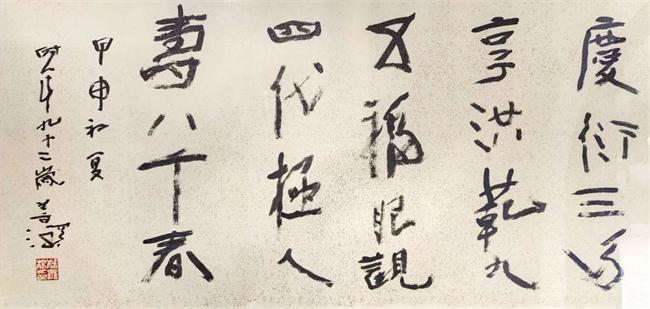 慶衍三多
享洪範九
五福眼觀
四代極人
壽八千春
甲申初夏
时年九十二歲